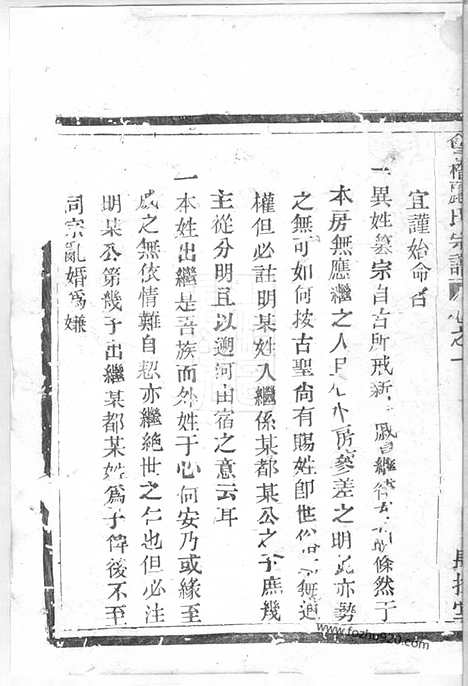 宜謹始命名
一異姓篡宗自古所戒新
繼律條然于
本房無應繼之人房參差之明亦勢
之無可如何按古聖尚有賜姓即世俗無過
權但必註明某姓入繼係某都某公之子庶幾
主從分明且以遡河由宿之意云耳
一本姓出繼是吾族而外姓于心何安乃或緣至
戚之無依情難自恝亦繼絕世之仁也但必注
明某公第幾子出繼某都某姓爲子俾後不至
同宗亂婚爲嫌
氏宗譜
www.fozhu920.com